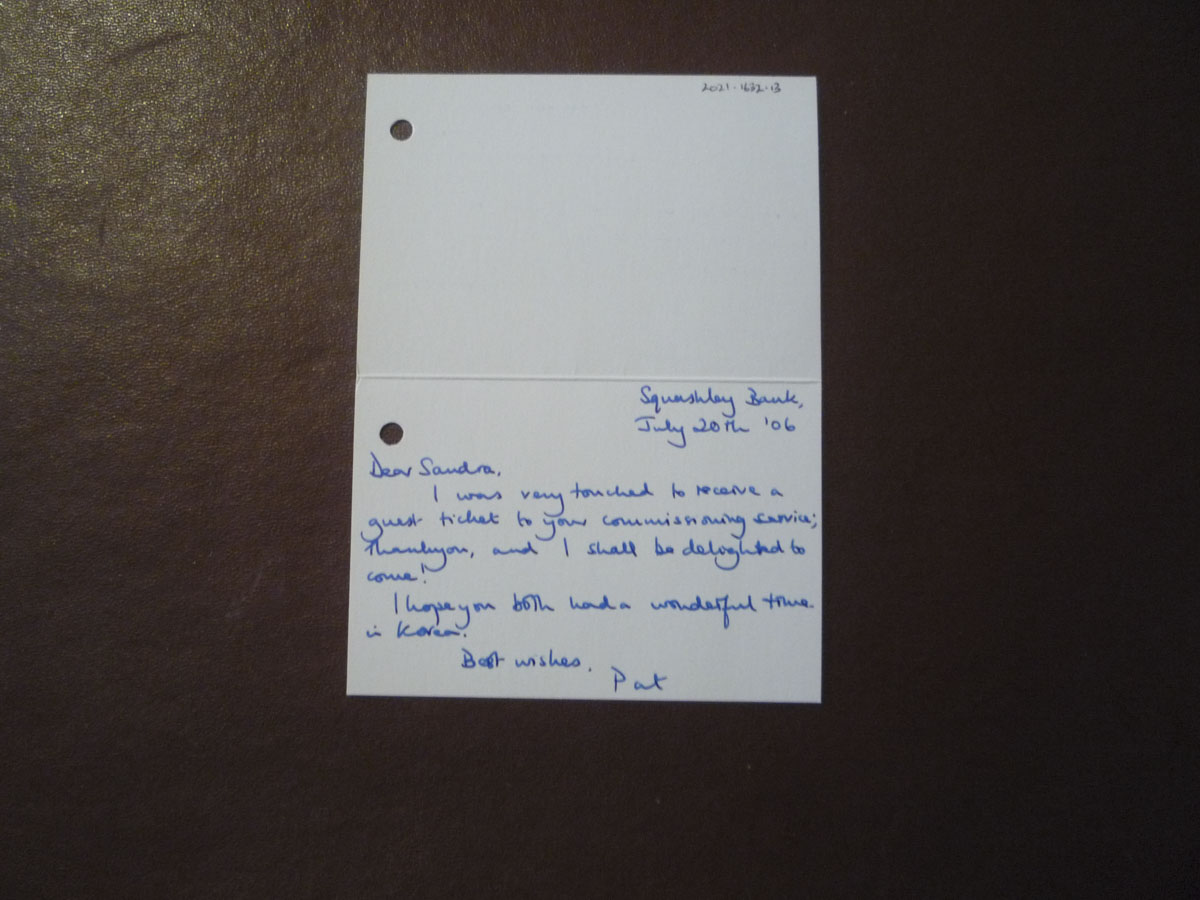 2021.1632.13
Squashley Bank,
July 20th '06
Dear Sandra,
I was very touched to receive a
guest ticket to your commissioning service;
thankyou, and I shall be delighted to
come!
I hope you both had a wonderful time
in Korea.
Best wishes,
Pat